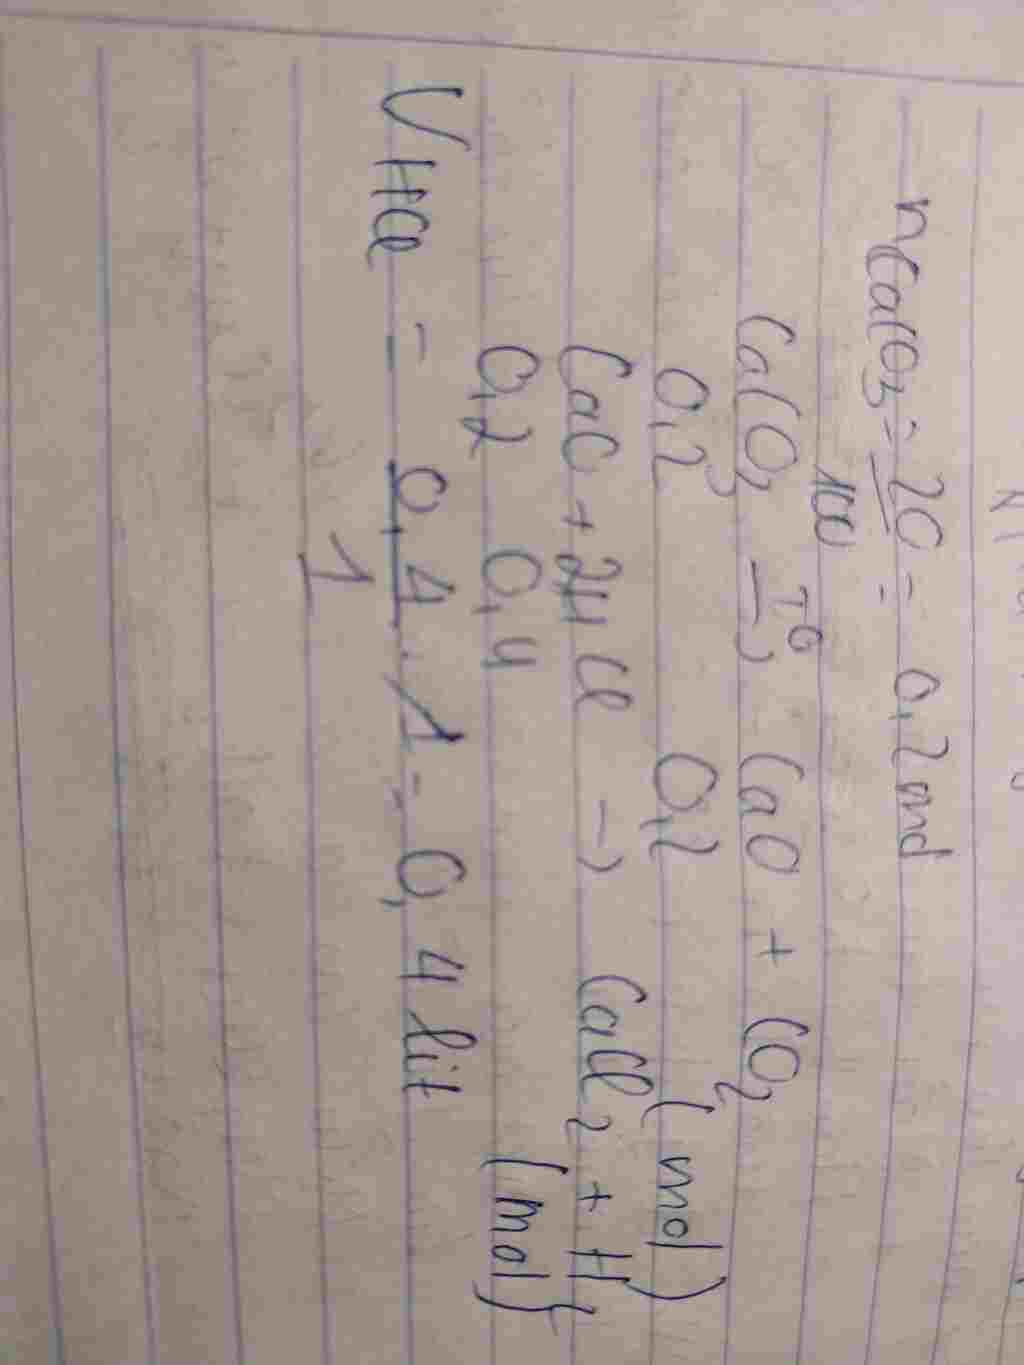 nCaCO3 = 20 = 0,2 mol
100
CaCO3 T° → CaO + CO2
0,2 0,2 (mol)
CaO + 2HCl → CaCl2 + H
0,2 0,4 (mol)
VHCl = 0,4 . 1 = 0,4 lit
1